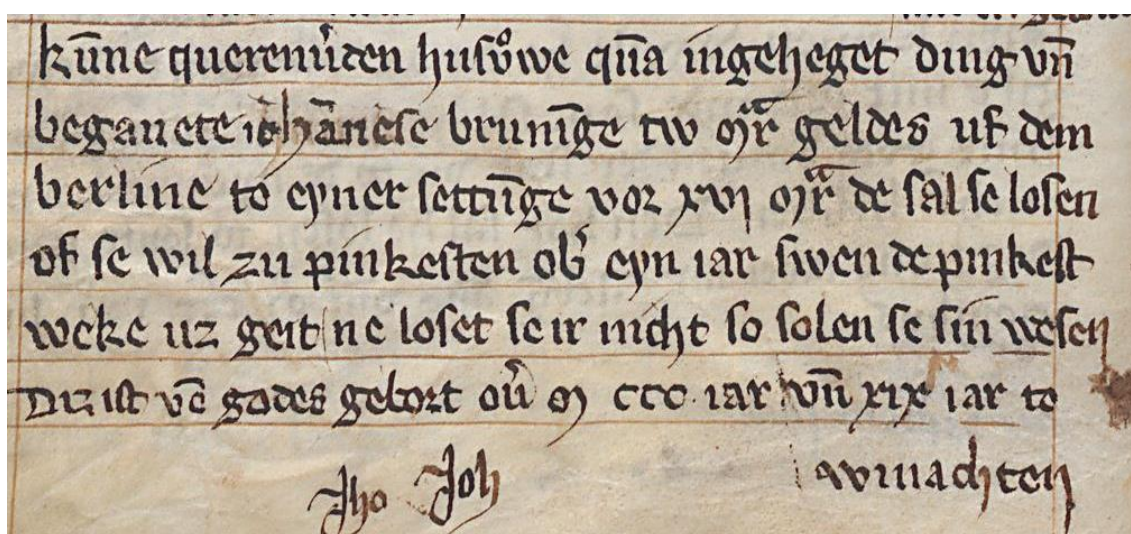 kūne querenv̄rden husvͦwe qūa ingeheget ding vn̄
begauete iohānese brunīge tw mr̄ geldes uf dem
berline to eyner settūge vor xvi mr̄ de sal se losen
of se wil zu pinkesten ob̓ eyn iar swen de pinkest
weke uz geit ne loset se ir nicht so solen se sin wesen
Diz ist vō godes gebort ou̓ m ccc iar vn̄ xix iar to
Jho Joh winachten